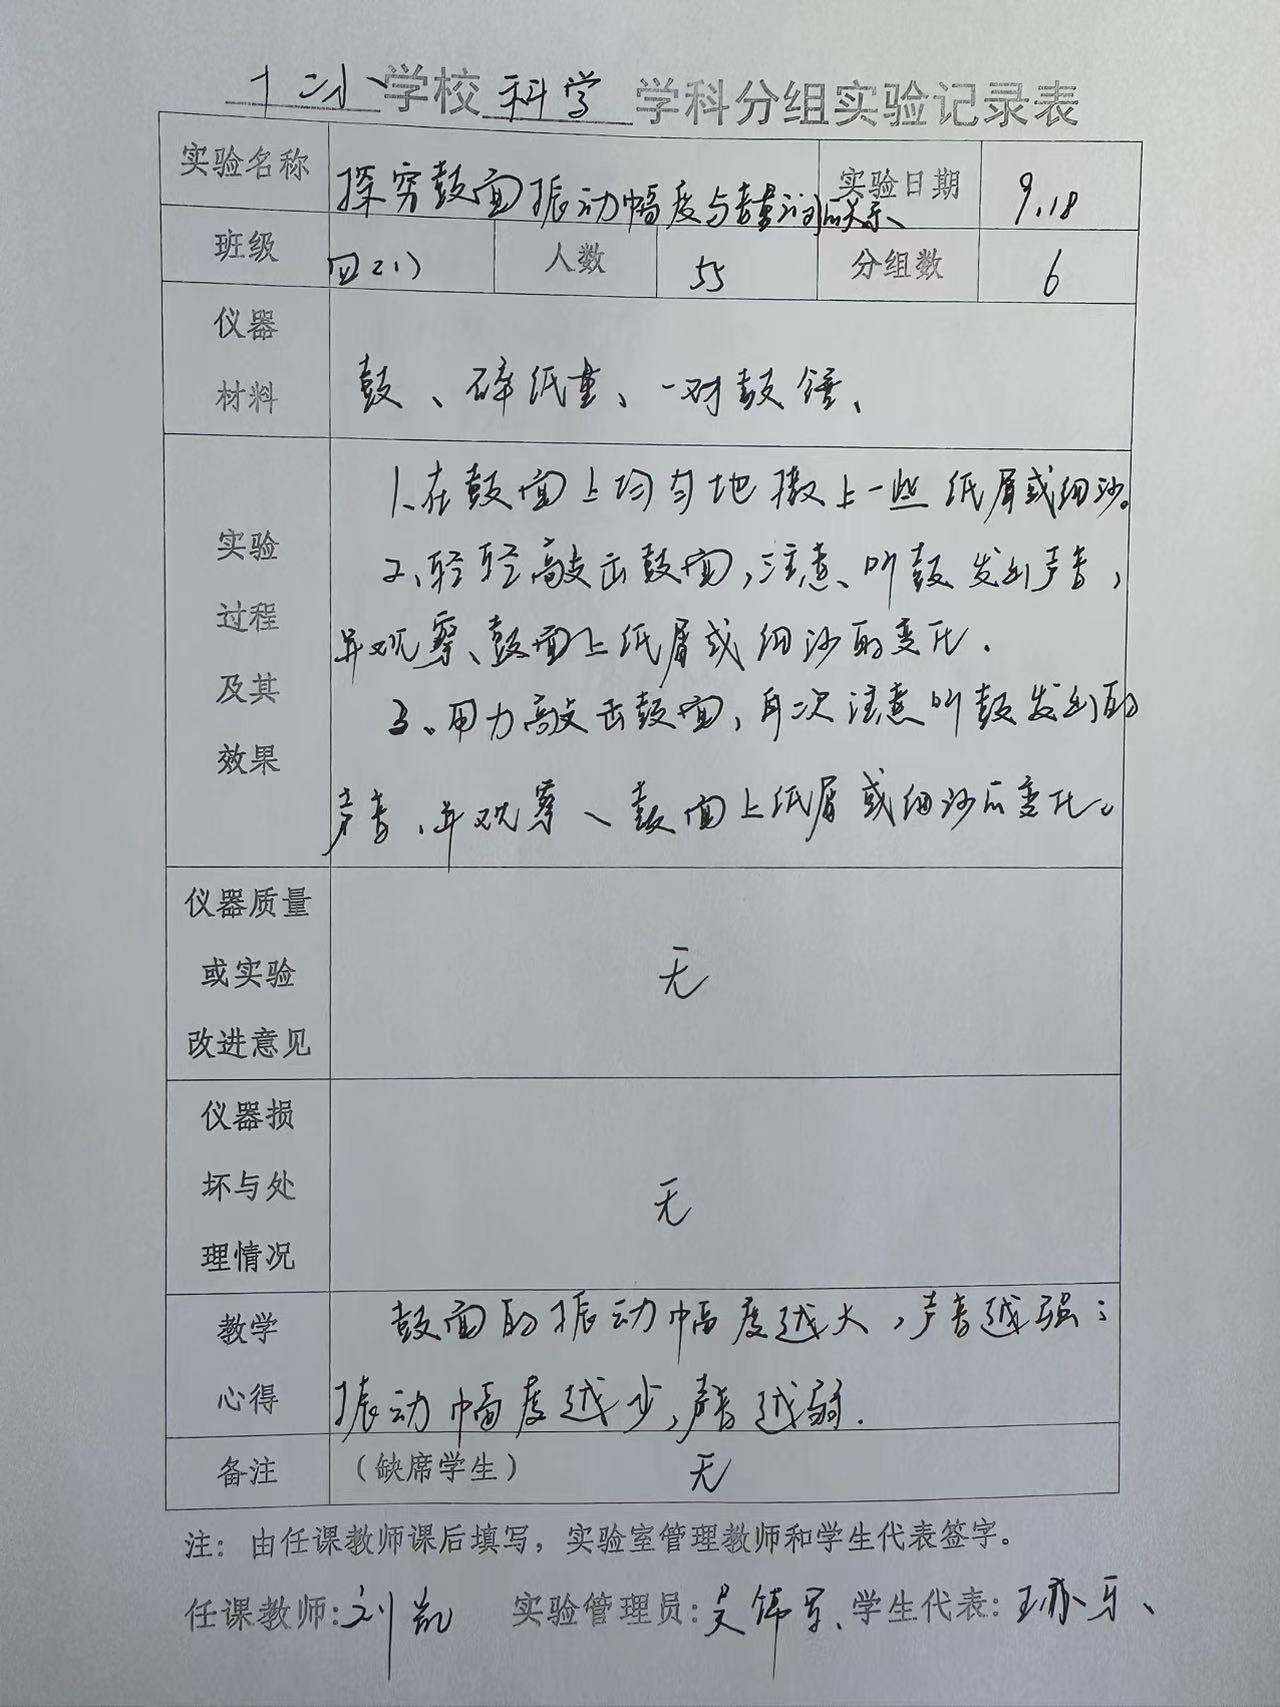 十二小学校科学学科分组实验记录表
实验名称 探究鼓面振动幅度与音量之间的关系 实验日期 9.18
班级 四(1) 人数 55 分组数 6
仪器
材料
鼓、碎纸、一对鼓锤、
实验
过程
及其
效果
1.在鼓面上均匀地撒上一些纸屑或细沙。
2、轻轻敲击鼓面,注意、听鼓发出声音,
并观察、鼓面上纸屑或细沙的变化.
3、用力敲击鼓面,再次注意听鼓发出的
声音、并观察、鼓面上纸屑或细沙的变化。
仪器质量
或实验
改进意见
无
仪器损
坏与处
理情况
无
教学
心得
鼓面的振动幅度越大,声音越强;
振动幅度越少,声音越弱.
备注 (缺席学生) 无
注:由任课教师课后填写,实验室管理教师和学生代表签字。
任课教师:刘凯 实验管理员:吴伟军、学生代表:王亦